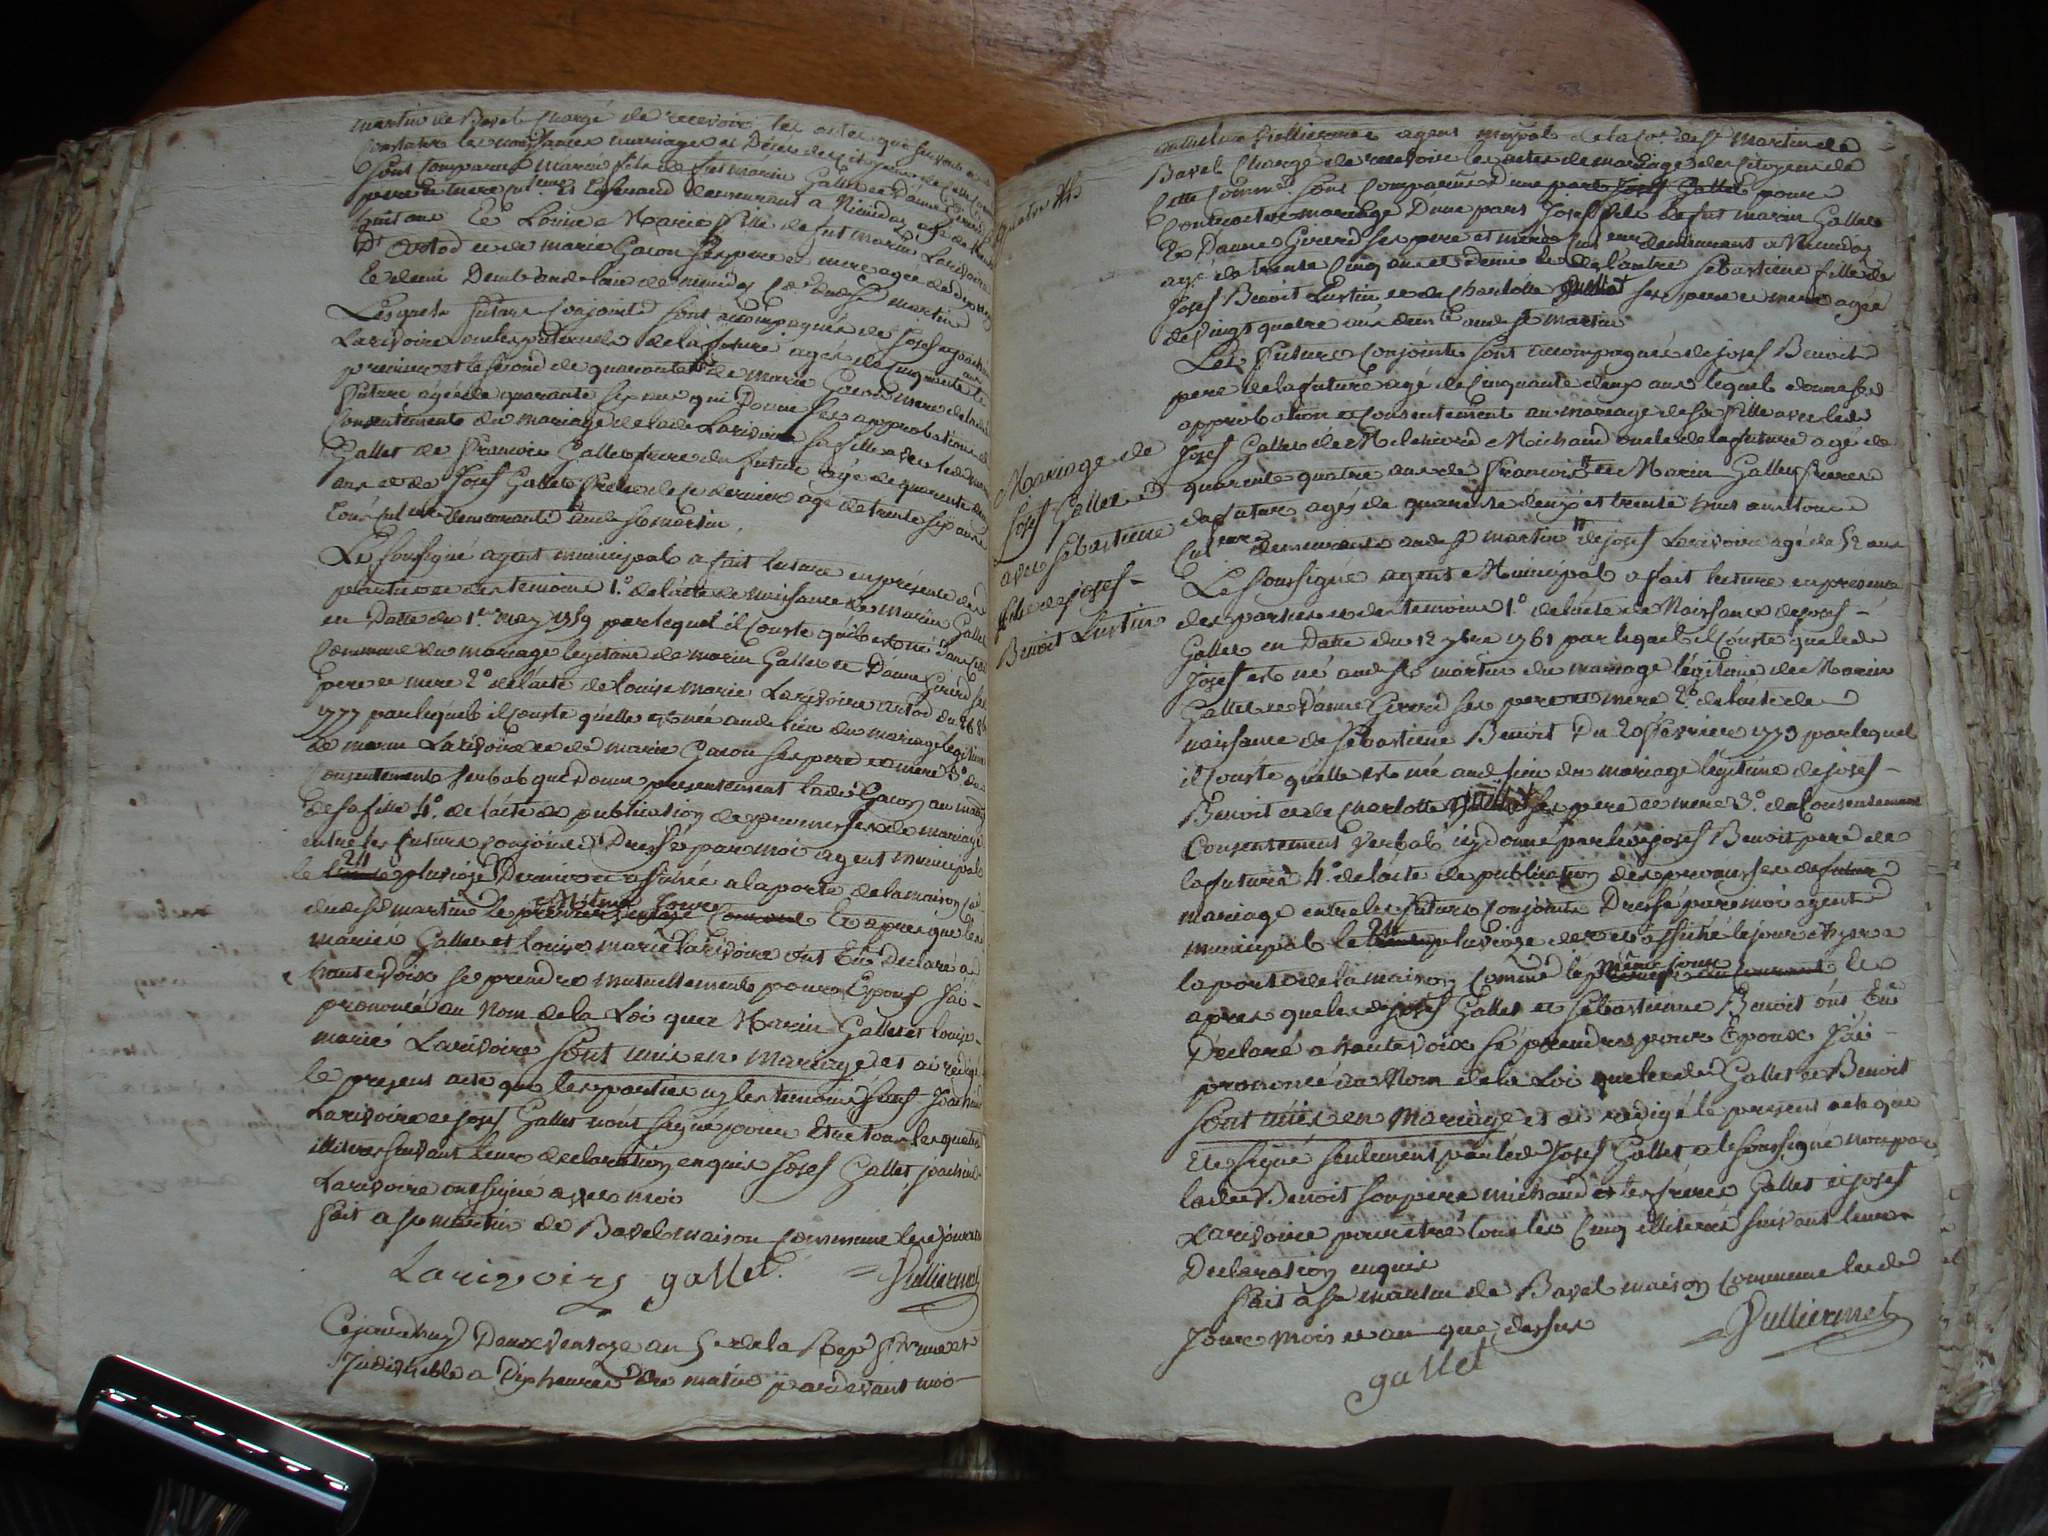 martin de Bavel chargé de recevoir les actes que
constater les naissances mariages et Décés des Citoyens de cette
sont comparus marin fils de fut marin Gallet et Danne Girerd
pere et mere demeurant a Nimidos age de
huit ans Et Louise Marie fille de fut marin Larivoire
dt Ostod et de marie Gacon ses pere et mere agée de dix
Et demi martin
Lesquels futurs Conjoints sont accompagnés de Josef et joachim
Larivoire oncles paternels de la future agés de cinquante
premier et le second de quarante de marie Gacon mere de la
future agée de quarante six ans qui Donne ses approbation et
Consentements du mariage de lade Larivoire sa fille avec led
Gallet de francois Gallet frere du futur agé de quarante deux
ans et de Josef Gallet frere de ce dernier agé de trente six ans
tous demeurants aud st martin.
Le soussigné agent municipal a fait lecture en présence des
parties et des temoins 1.° de l'acte de naissance de marin Gallet
en Datte du 1.er may 1759 par lequel il Conste qu'il est né dans
Commune du mariage legitime de marin Gallet et Danne Girerd ses
pere et mere 2.° de l'acte de louise marie Larivoire ostod du
1777 par lequel il Conste qu'elle est née aud lieu du mariage legitime
de marin Larivoire et de marie Gacon ses pere et mere 3.° du
Consentement verbal que Donne presentement lade Gacon au mariage
de sa fille 4.° de l'acte de publication de promesses de mariage
entre les futurs conjoints Dressé par moi agent municipal
le 24 pluvioze Dernier et affichée a la porte de la maison
dud st martin le premier ventose Même Jour Courant Et apres que les
mariés Gallet et Louise marie Larivoire ont Eu Declaré a
haute voix se prendre mutuellement pour Epoux J'ai-
prononcé au Nom de la Loi que Marin Gallet et louise
marie Larivoire sont unis en Mariage et ai redigé
le present acte que les parties ny les temoins sauf Joachim
Larivoire et josef Gallet n'ont signé pour Etre tous les quatre
illiterés suivant leur declaration enquis Josef Gallet, joachim
Larivoire ont signé avec moi
fait a st martin de Bavel maison Commune led jour
Larivoire gallet. Vulliermet
Cejourdhuy Deux ventoze an 5e de la Rep. f. une et
Indivisible a Dix heures du matin pardevant moi
Vulliermet agent mupal de la Coe de st Martin de
Bavel Chargé de recevoir les actes de mariage des Citoyens de
Cette Comme sont comparus d'une part Josef Gallet pour
Contracter mariage D'une part Josef fils de fut marin Gallet
Et Danne Girerd ses pere et mere demeurant a Nimidos
age de trente cinq ans et demi Et de l'autre Sébastiene fille de
Josef Benoit Lustin et de Charlotte ses pere et mere agée
de vingt quatre ans aud st martin
Les futurs Conjoints sont accompagnés de josef Benoit
pere de la future agé de cinquante deux ans lequel donne ses
approbation et Consentement au mariage de sa fille avec led
Josef Gallet de Michaud oncle de la future agé de
Mariage de
Josef Gallet et
avec Sébastiene
fille de josef-
Benoit Lustin
quarente quatre ans de francois et Marin Gallet freres
du futur agés de quarante deux et trente huit ans tous
demeurants aud st martin et josef Larivoire agé de 52 ans
Le soussigné agent Municipal a fait lecture en presence
des parties et des temoins 1.° de l'acte de Naissance de josef-
Gallet en Datte du 12 7bre 1761 par lequel il Conste que led
Josef est né aud st martin du mariage légitime de Marin
Gallet et Danne Girerd ses pere et mere 2.° de l'acte de
naissance de Sébastiene Benoit Du 20 février 1773 par lequel
il Conste qu'elle est née aud lieu du mariage legitime de josef-
Benoit et de Charlotte ses pere et mere 3.° du Consentement
Consentement verbal icy donné par led josef Benoit pere de
la future 4.° de l'acte de publication des promesses de futur
mariage entre les futurs Conjoints Dressé par moi agent
municipal le 24 pluvioze der et affiché le jour
la porte de la maison Comme le même jour du courant Et
apres que led Josef Gallet et Sébastienne Benoit ont Eu
Déclaré a haute voix sé prendre pour Epoux J'ai-
prononcé au Nom de la Loi que led Gallet et Benoit
sont unis en Mariage et ai redigé le present acte que
Et signé seulement par led Josef Gallet et le soussigné non par
lade Benoit son pere michaud et les freres Gallet et josef
Larivoire pour etre tous les Cinq illiterés suivant leur
Declaration enquis
fait a st martin de Bavel maison Commune les d
Jour Mois et an que dessus
Vulliermet
gallet